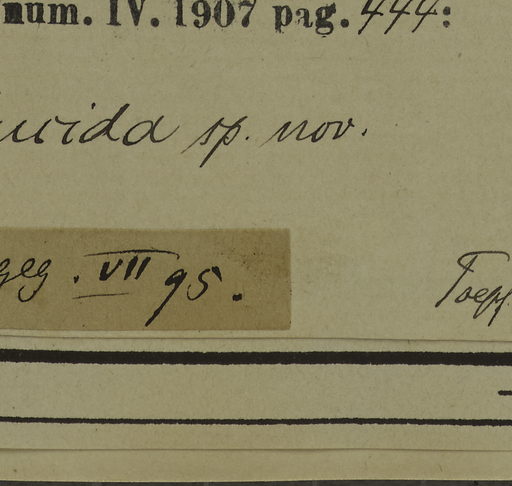 num. IV. 1907 pag. 444:
sp. nov.
geg. VII 95.
Toepf